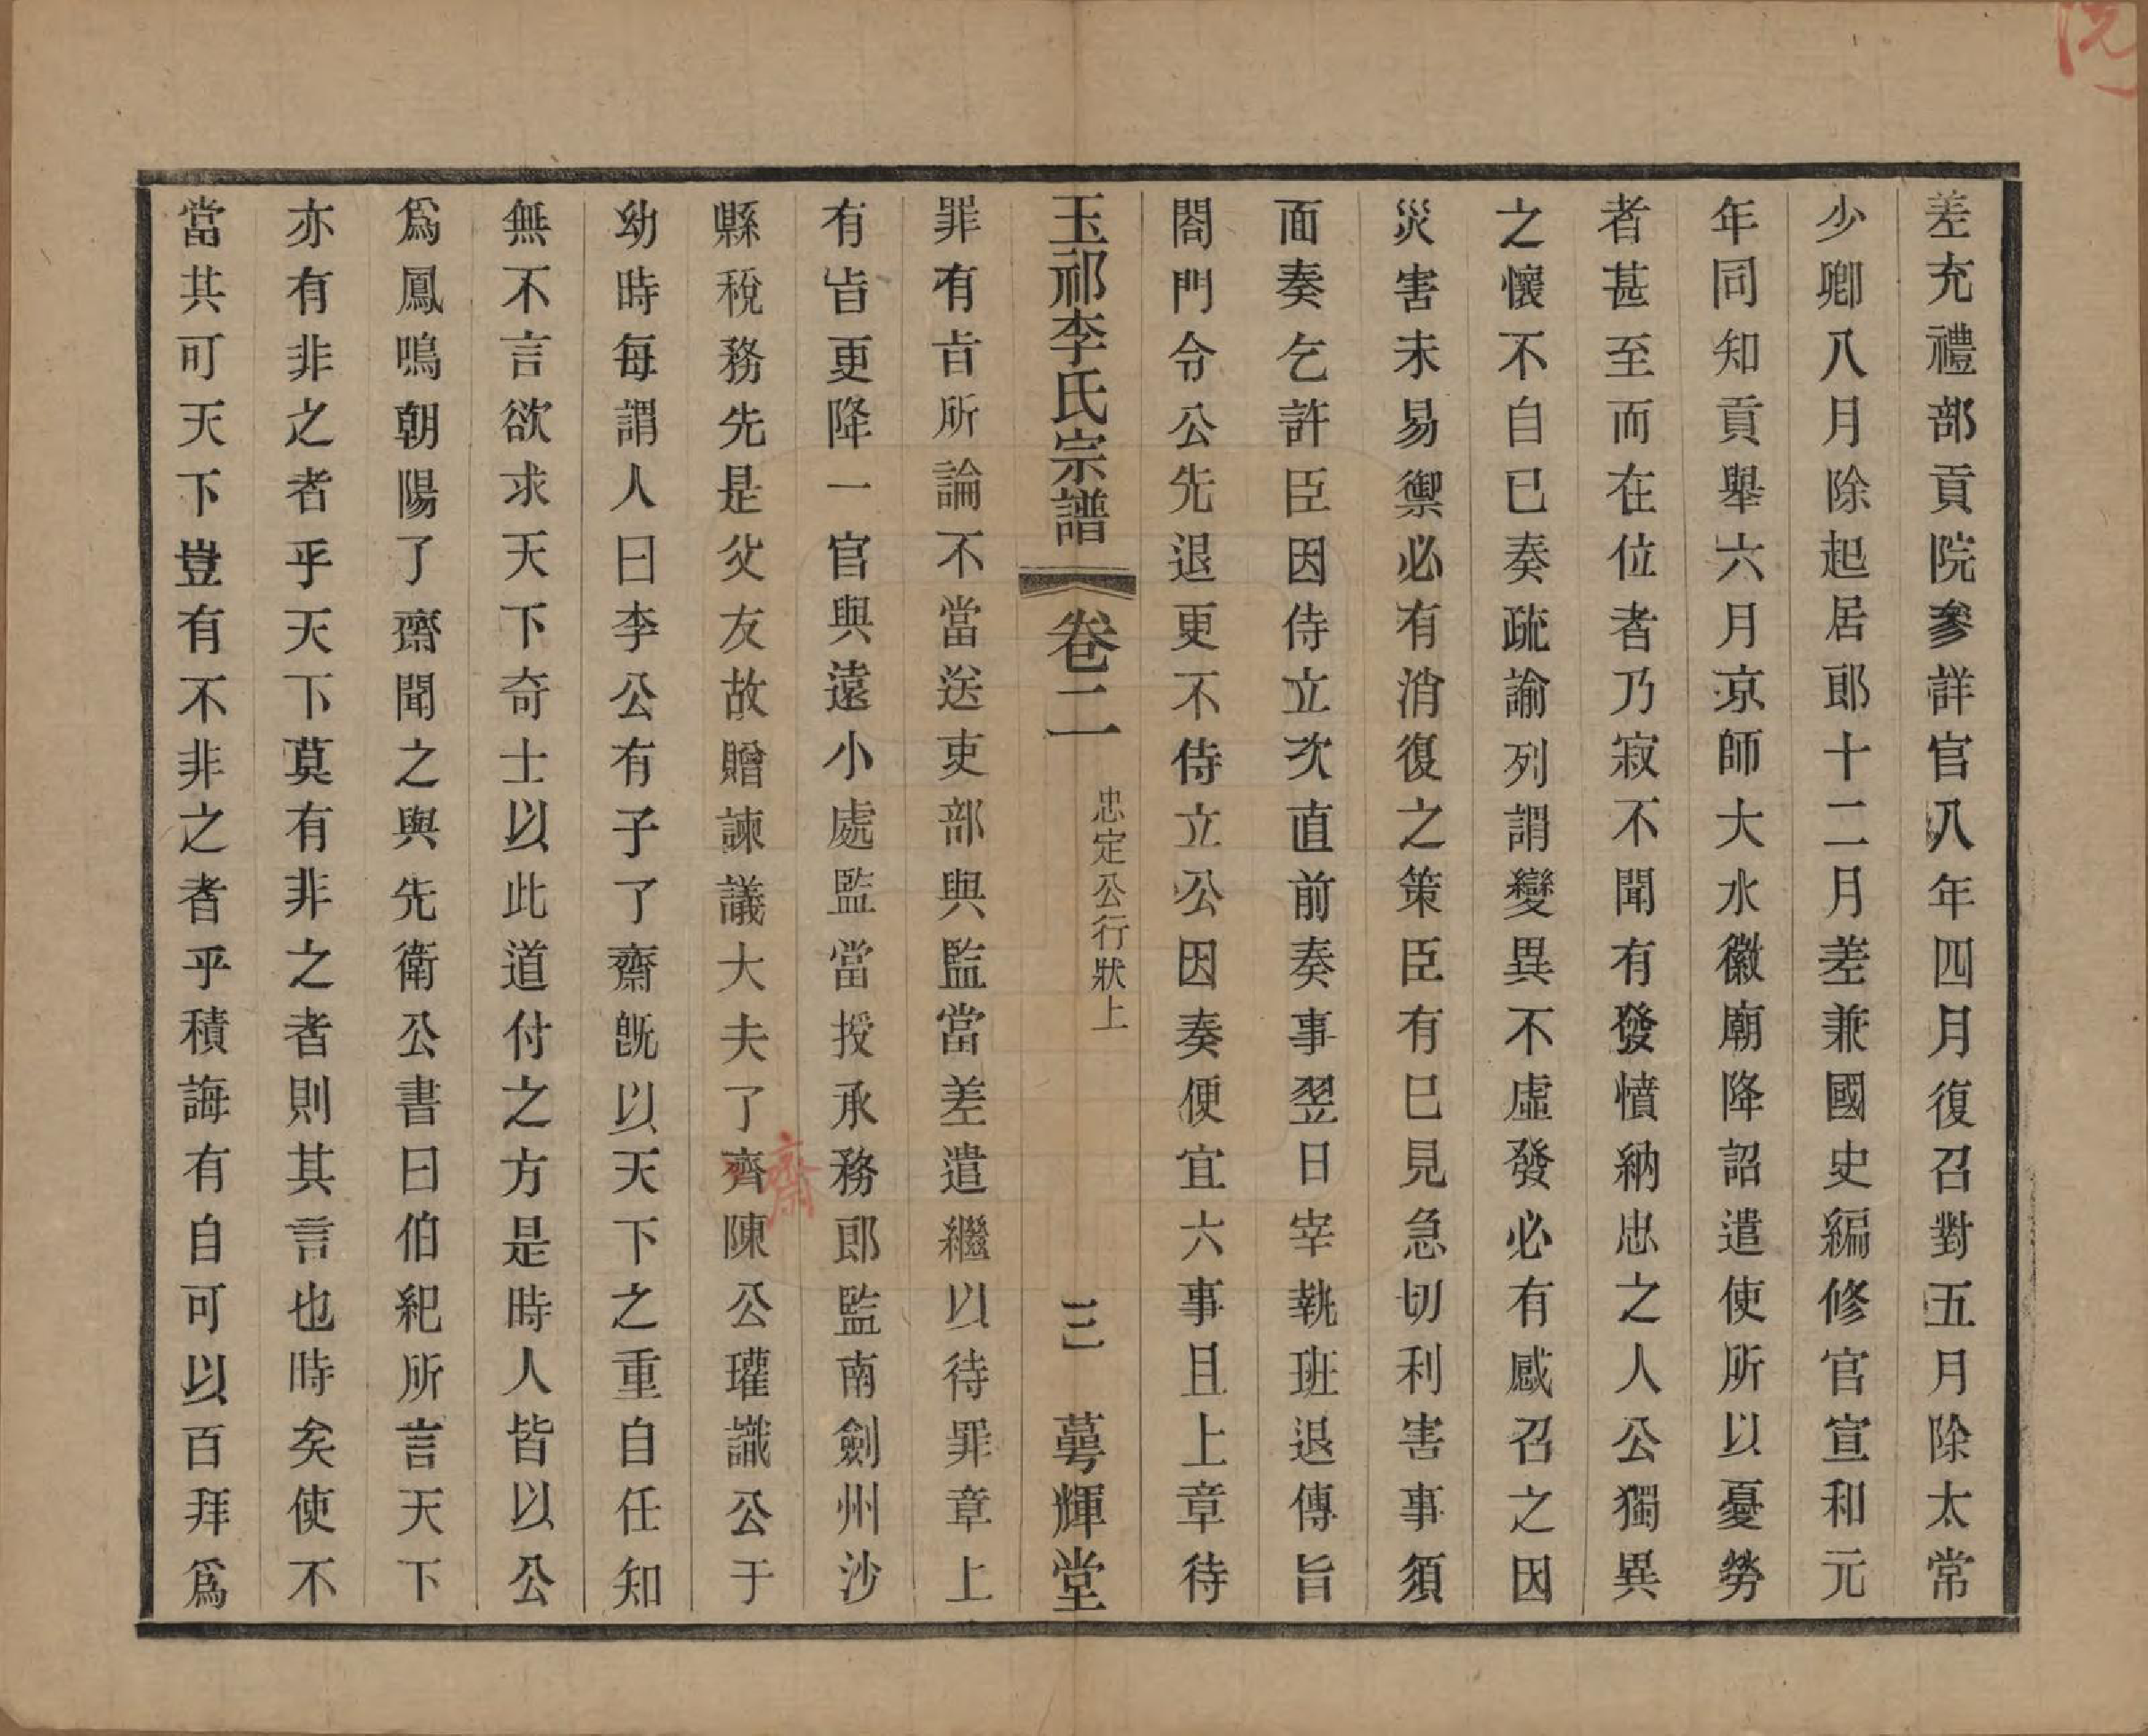 差充禮部貢院參詳官八年四月復召對五月除太常
少卿八月除起居郎十二月差兼國史編修官宣和元
年同知貢舉六月京師大水徽廟降詔遣使所以憂勞
者甚至而在位者乃寂不聞有發憤納忠之人公獨異
之懷不自已奏疏諭列謂變異不虛發必有感召之因
災害未易禦必有消復之策臣有巳見急切利害事須
面奏乞許臣因侍立次直前奏事翌日宰執班退傳旨
閤門令公先退更不侍立公因奏便宜六事且上章待
玉祁李氏宗譜
卷二
忠定公行狀上
三
萼輝堂
罪有旨所論不當送吏部與監當差遣繼以待罪章上
有旨更降一官與遠小處監當授承務郎監南劍州沙
縣稅務先是父友故贈諫議大夫了齊陳公瓘識公于
齋
幼時每謂人曰李公有子了齋旣以天下之重自任知
無不言欲求天下奇士以此道付之方是時人皆以公
爲鳳鳴朝陽了齋聞之與先衛公書曰伯紀所言天下
亦有非之者乎天下莫有非之者則其言也時矣使不
當其可天下豈有不非之者乎積誨有自可以百拜爲